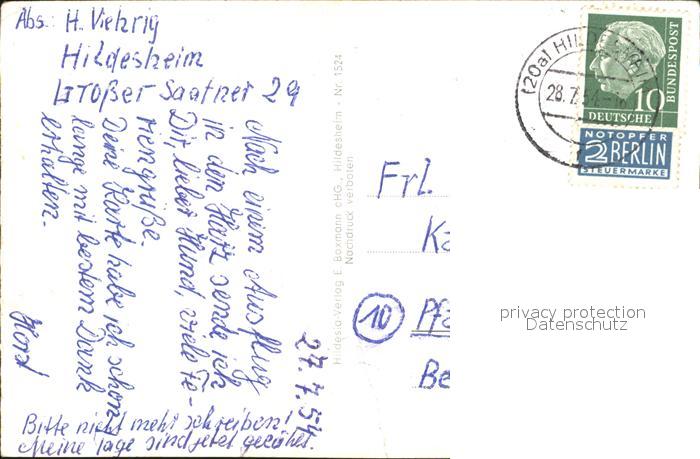 Abs.: H. Viehrig
Hildesheim
Großer Saatner 29
Nach einem Ausflug
in den Harz sende ich
Dir, lieber Hund, viele Fe-
riengrüße.
Deine Karte habe ich schon
lange mit bestem Dank
erhalten.
Horst
27.7.54
Bitte nicht mehr schreiben!
Meine Tage sind jetzt gezählt.
Hildesia-Verlag E. Boxmann oHG., Hildesheim - Nr. 1524
Nachdruck verboten
(20a) HILDESHEIM
28.7.54
10
DEUTSCHE
BUNDESPOST
NOTOPFER
2 BERLIN
STEUERMARKE
Frl.
Ka
10 Pfa
Be
privacy protection
Datenschutz